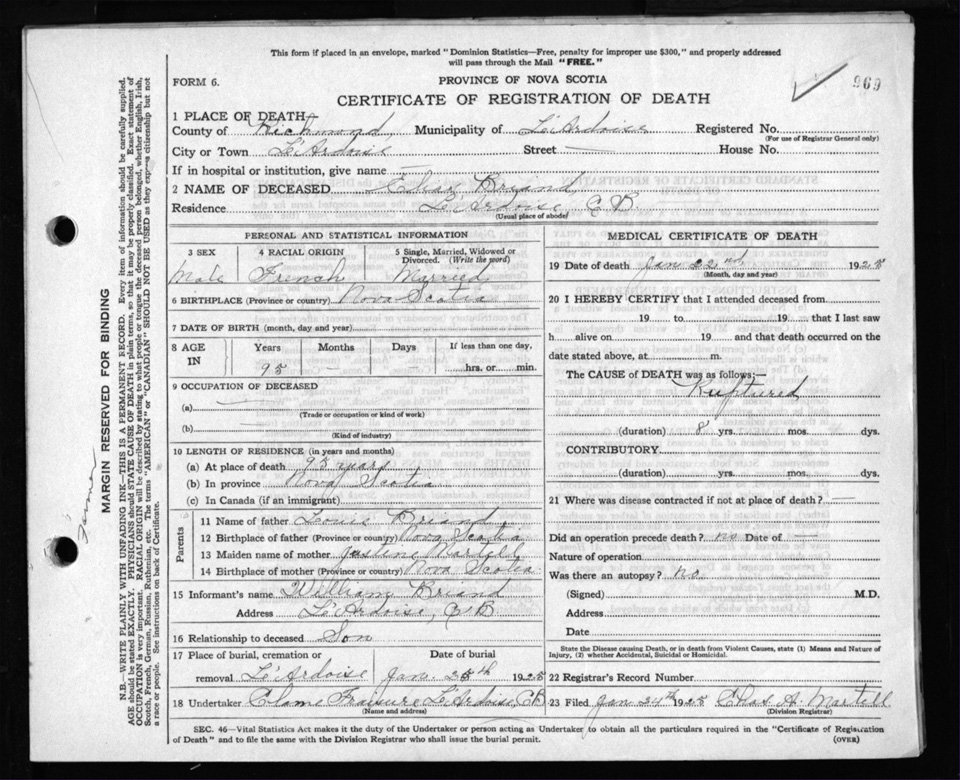 This form if placed in an envelope, marked "Dominion Statistics—Free, penalty for improper use $300," and properly addressed
will pass through the Mail "FREE."
FORM 6.
PROVINCE OF NOVA SCOTIA
969
CERTIFICATE OF REGISTRATION OF DEATH
1 PLACE OF DEATH
County of Richmond Municipality of L'Ardoise Registered No.
(For use of Registrar General only)
City or Town L'Ardoise Street — House No.
If in hospital or institution, give name —
2 NAME OF DECEASED Briand
Residence L'Ardoise C B
(Usual place of abode)
PERSONAL AND STATISTICAL INFORMATION
3 SEX 4 RACIAL ORIGIN 5 Single, Married, Widowed or
Divorced. (Write the word)
Male French Married
6 BIRTHPLACE (Province or country) Nova Scotia
7 DATE OF BIRTH (month, day and year)
8 AGE Years Months Days If less than one day,
IN 95 — hrs. or min.
9 OCCUPATION OF DECEASED
(a) —
(Trade or occupation or kind of work)
(b) —
(Kind of industry)
10 LENGTH OF RESIDENCE (in years and months)
(a) At place of death 95 years
(b) In province Nova Scotia
(c) In Canada (if an immigrant)
Parents
11 Name of father Louis Briand
12 Birthplace of father (Province or country) Nova Scotia
13 Maiden name of mother Justine Martell
14 Birthplace of mother (Province or country) Nova Scotia
15 Informant's name William Briand
Address L'Ardoise, C B
16 Relationship to deceased Son
17 Place of burial, cremation or Date of burial
removal L'Ardoise Jan. 25th 1928
18 Undertaker L'Ardoise, CB
(Name and address)
MEDICAL CERTIFICATE OF DEATH
19 Date of death Jan 22nd 1928
(Month, day and year)
20 I HEREBY CERTIFY that I attended deceased from
19 to 19 that I last saw
h alive on 19 and that death occurred on the
date stated above, at m.
The CAUSE of DEATH was as follows:—
Ruptured
(duration) 8 yrs. mos. dys.
CONTRIBUTORY.
(duration) yrs. mos. dys.
21 Where was disease contracted if not at place of death? —
Did an operation precede death? no Date of —
Nature of operation
Was there an autopsy? no
(Signed) M.D.
Address
Date
State the Disease causing Death, or in death from Violent Causes, state (1) Means and Nature of
Injury, (2) whether Accidental, Suicidal or Homicidal.
22 Registrar's Record Number
23 Filed Jan 24th 1928 Chas A. Martell
(Division Registrar)
SEC. 46—Vital Statistics Act makes it the duty of the Undertaker or person acting as Undertaker to obtain all the particulars required in the "Certificate of Registration
of Death" and to file the same with the Division Registrar who shall issue the burial permit.
(OVER)
Farmer
MARGIN RESERVED FOR BINDING
N.B.—WRITE PLAINLY WITH UNFADING INK—THIS IS A PERMANENT RECORD. Every item of information should be carefully supplied.
AGE should be stated EXACTLY. PHYSICIANS should STATE CAUSE OF DEATH in plain terms, so that it may be properly classified. Exact statement of
OCCUPATION is very important. RACIAL ORIGIN will be described by stating to what people or tongue the deceased person belonged, whether English, Irish,
Scotch, French, German, Russian, Ruthenian, etc. The terms "AMERICAN" or "CANADIAN" SHOULD NOT BE USED as they express citizenship but not
a race or people. See instructions on back of Certificate.